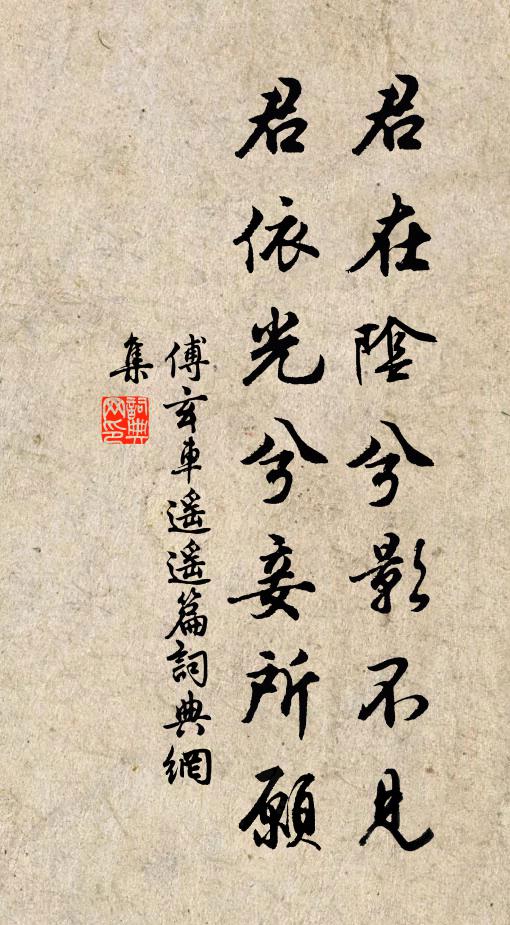 君在陰兮影不見
君依光兮妾所願
傅玄車遥遥篇詞典網
集
詞典
網印